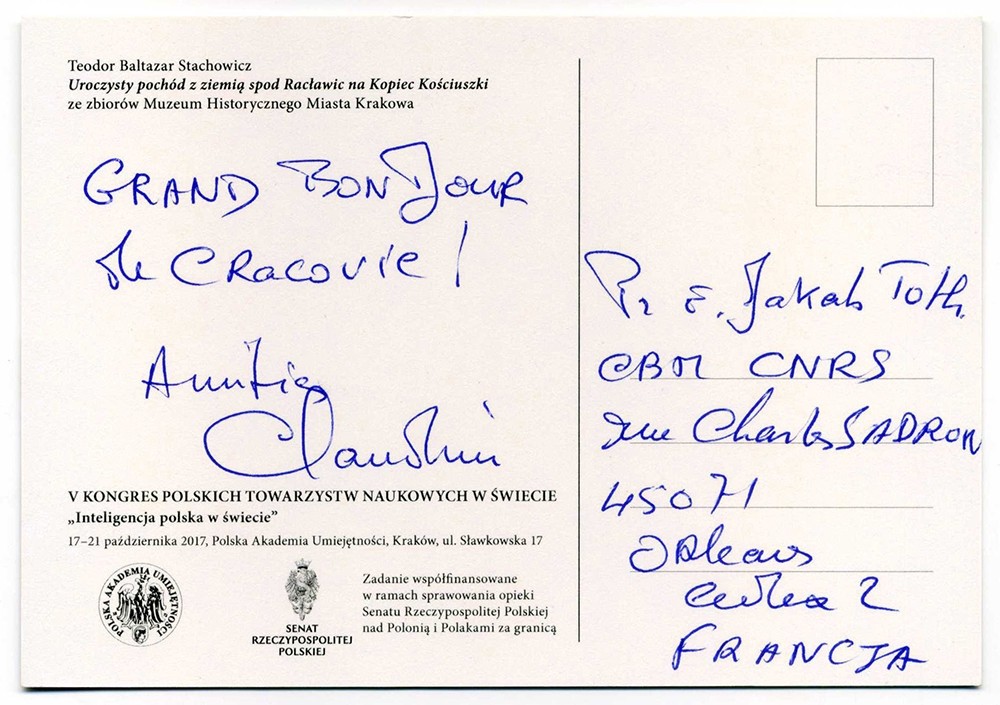 Teodor Baltazar Stachowicz
Uroczysty pochód z ziemią spod Racławic na Kopiec Kościuszki
ze zbiorów Muzeum Historycznego Miasta Krakowa
GRAND BONJOUR
de CRACOVIE !
V KONGRES POLSKICH TOWARZYSTW NAUKOWYCH W ŚWIECIE
„Inteligencja polska w świecie”
17–21 października 2017, Polska Akademia Umiejętności, Kraków, ul. Sławkowska 17
POLSKA AKADEMIA UMIEJĘTNOŚCI
SENAT
RZECZYPOSPOLITEJ
POLSKIEJ
Zadanie współfinansowane
w ramach sprawowania opieki
Senatu Rzeczypospolitej Polskiej
nad Polonią i Polakami za granicą
Pr E. Jakab Toth
CBM CNRS
rue Charles SADRON
45071
ORLeans
cedex 2
FRANCJA